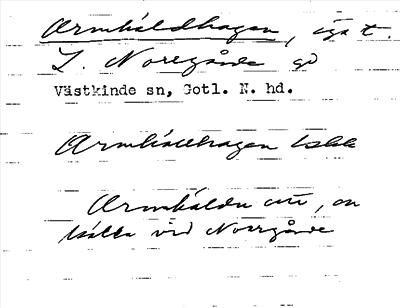 Armkäldhagen, äga t.
L. Norrgårde gd
Västkinde sn, Gotl. N. hd.
Armkällhagen
Armkäldu, en
källa vid Norrgårde